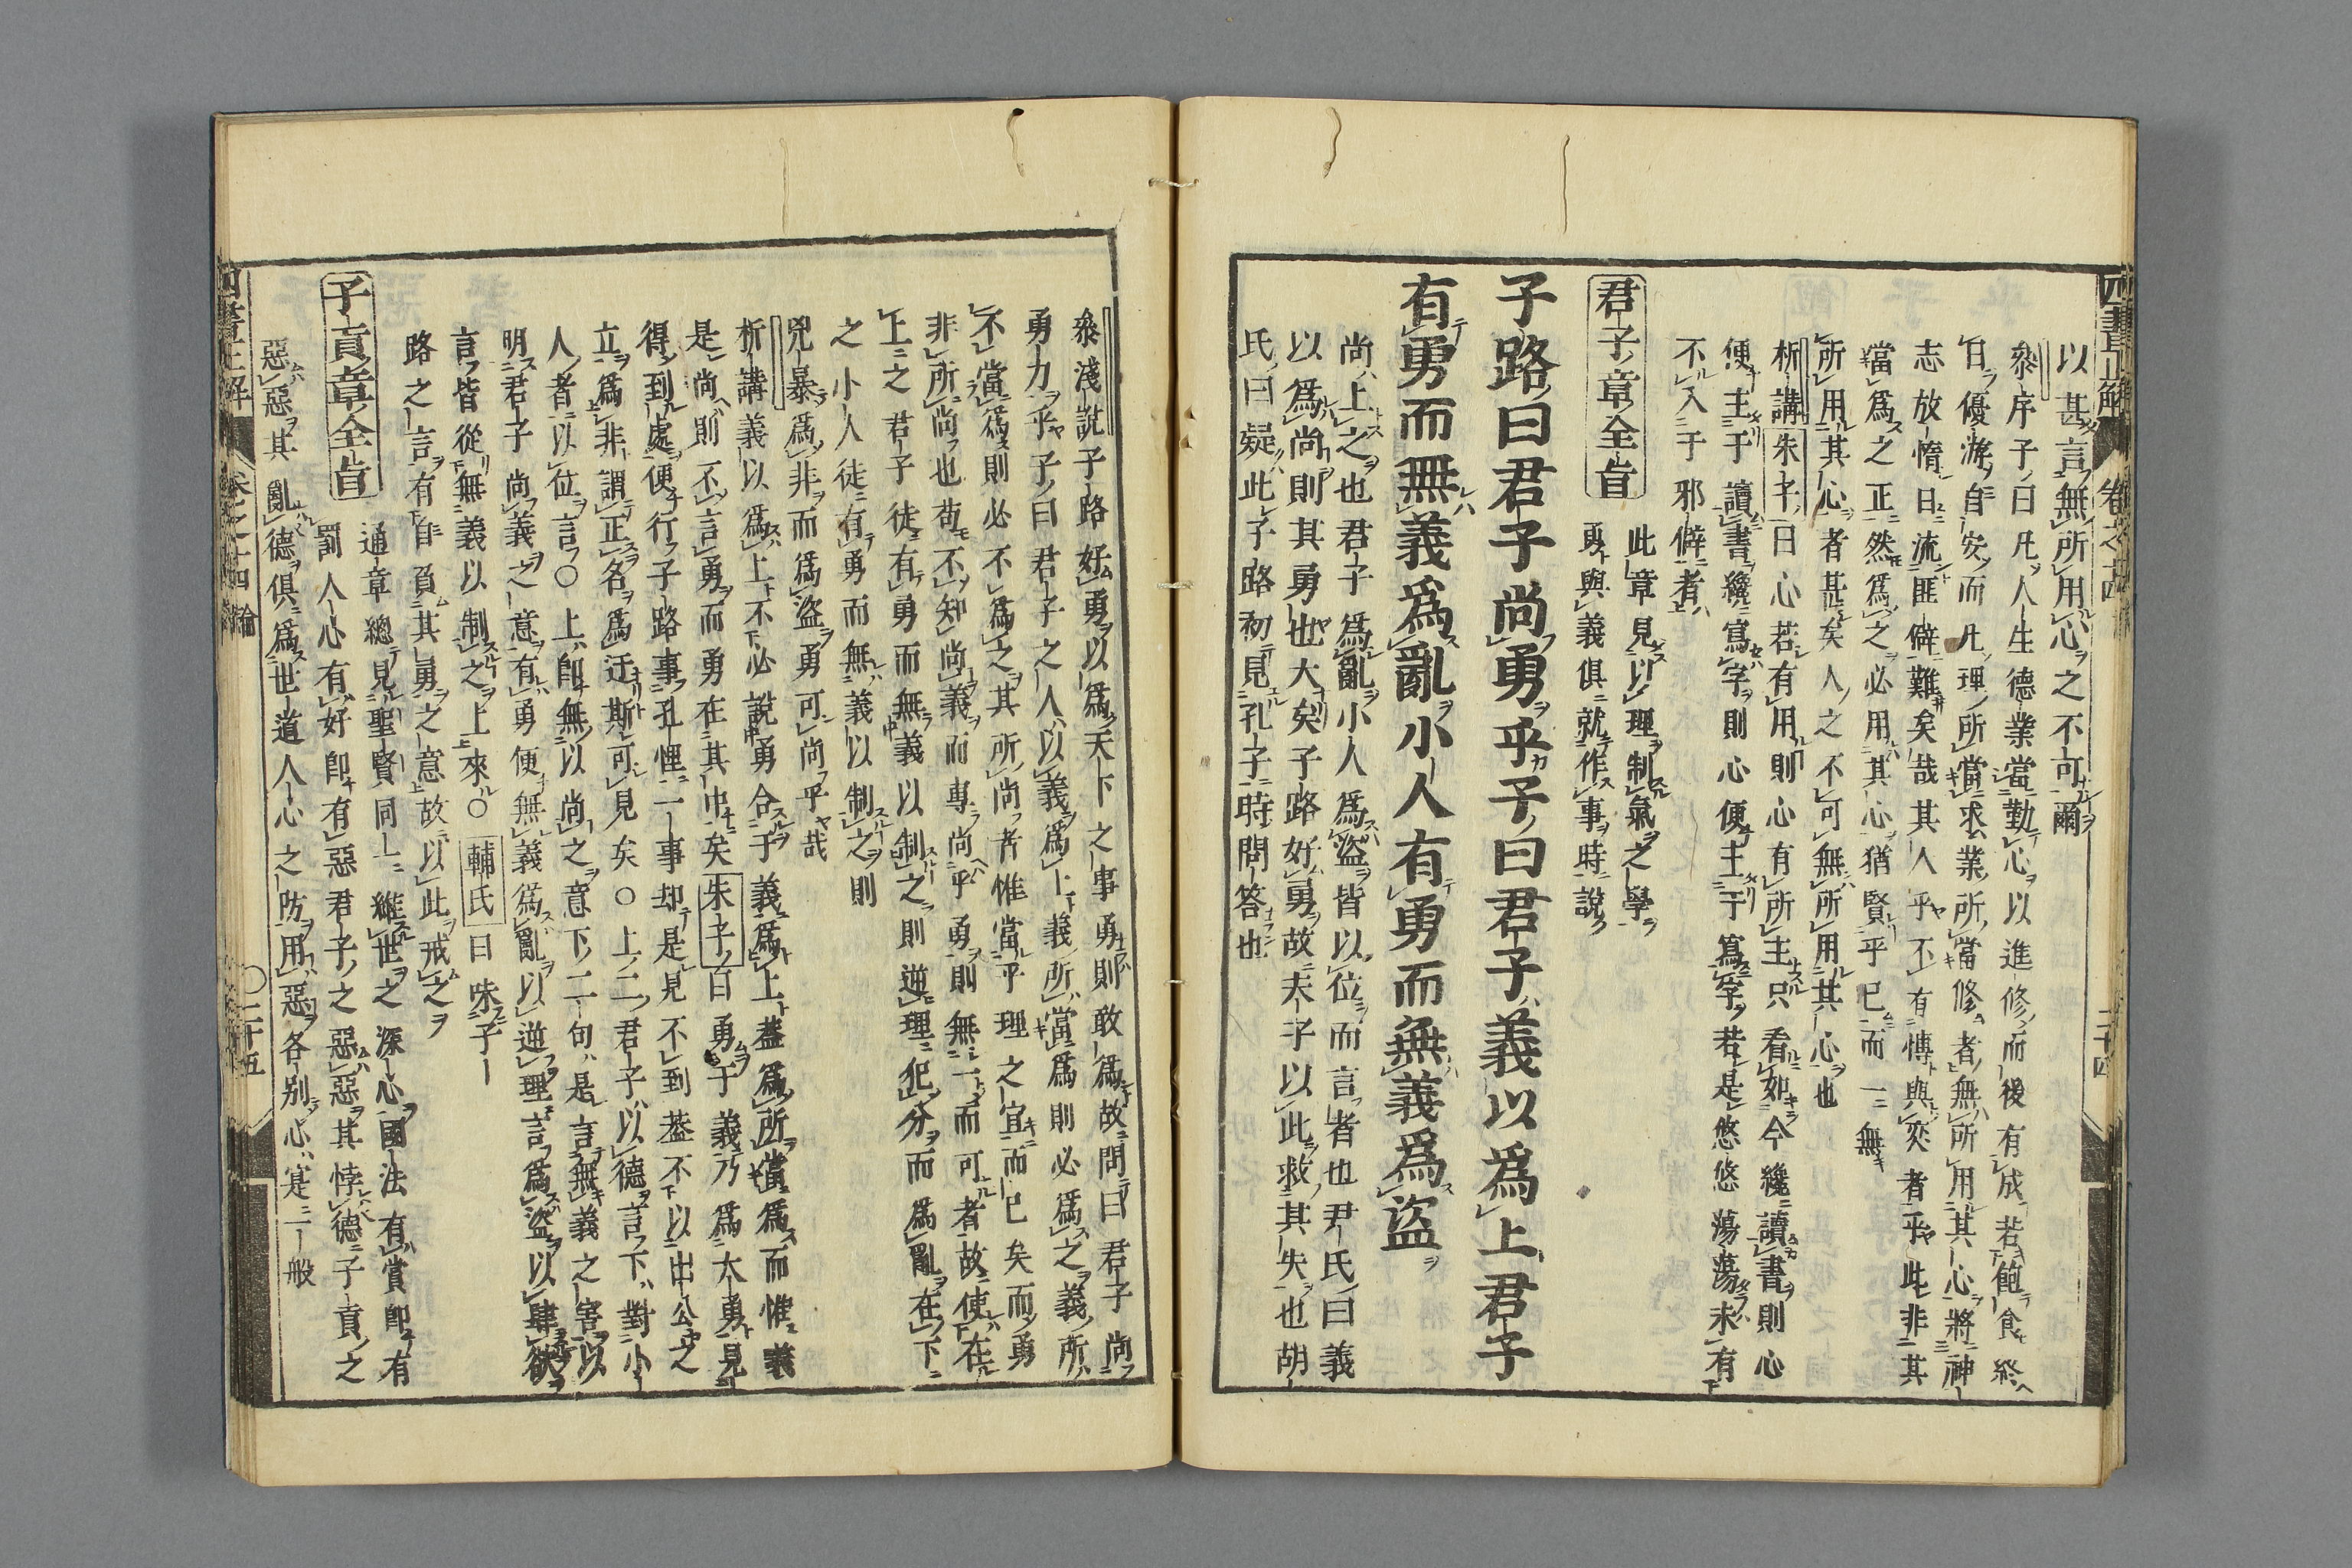 四書正解 卷之十四 論 二十四
以甚言無所用心之不可爾
叅序子曰凡人生德業當勤心以進修而後有成若飽食終
日優游自安而凡理所當求業所當修者無所用其心將神
志放惰日流匪僻難矣哉其人乎不有博與奕者乎此非其
當為之正然為之必用其心猶賢乎已而一無
所用其心者甚矣人之不可無所用其心也
析講朱子曰心若有用則心有所主只看如今纔讀書則心
便主于讀書纔寫字則心便主于寫字若是悠悠蕩蕩未有
不入于邪僻者
君子章全旨
此章見以理制氣之學
勇與義俱就作事時說
子路曰君子尚勇乎子曰君子義以為上君子
有勇而無義為亂小人有勇而無義為盜
尚上之也君子為亂小人為盜皆以位而言者也尹氏曰義
以為尚則其勇也大矣子路好勇故夫子以此救其失也胡
氏曰疑此子路初見孔子時問答也
叅淺說子路好勇以為天下之事勇則敢為故問曰君子尚
勇力乎子曰君子之人以義為上義所當為則必為之義所
不當為則必不為之其所尚者惟當乎理之宜而已矣而勇
非所尚也苟不知尚義而專尚乎勇則無一而可者故使在
上之君子徒有勇而無義以制之則逆理犯分而為亂在下
之小人徒有勇而無義以制之則
兇暴為非而為盜勇可尚乎哉
析講義以為上不必說勇合于義為上葢為所當為而惟義
是尚則不言勇而勇在其中矣朱子曰勇于義乃為大勇見
得到處便行子路事孔悝一事却是見不到葢不以出公之
立為非謂正名為迂斯可見矣○上二君子以德言下對小
人者以位言○上即無以尚之意下二句是言無義之害以
明君子尚義之意有勇便無義為亂以逆理言為盜以肆欲
言皆從無義以制之上來○輔氏曰味子
路之言有自負其勇之意故以此戒之
子貢章全旨
通章總見聖賢同一維世之深心國法有賞即有
罰人心有好即有惡君子之惡惡其悖德子貢之
惡惡其亂德俱為世道人心之防用惡各別心寔一般
四書正解 卷之十四 論 二十五